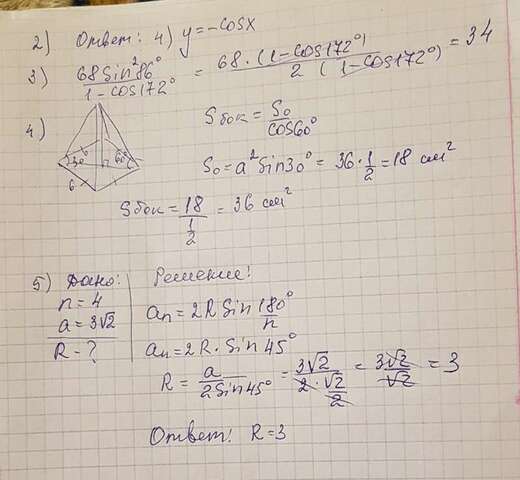 2) Ответ: 4) y=-cosx
3) 68 sin²86° / 1-cos172° = 68·(1-cos172°) / 2(1-cos172°) = 34
4) Sбок = S₀ / cos60°
30 60° 6
S₀ = a² sin30° = 36·1/2 = 18 см²
Sбок = 18 / 1/2 = 36 см²
5) Дано: Решение:
n = 4
a = 3√2
R - ?
aₙ = 2R sin 180° / n
aₙ = 2R · sin 45°
R = a / 2sin45° = 3√2 / 2·√2/2 = 3√2 / √2 = 3
Ответ: R=3